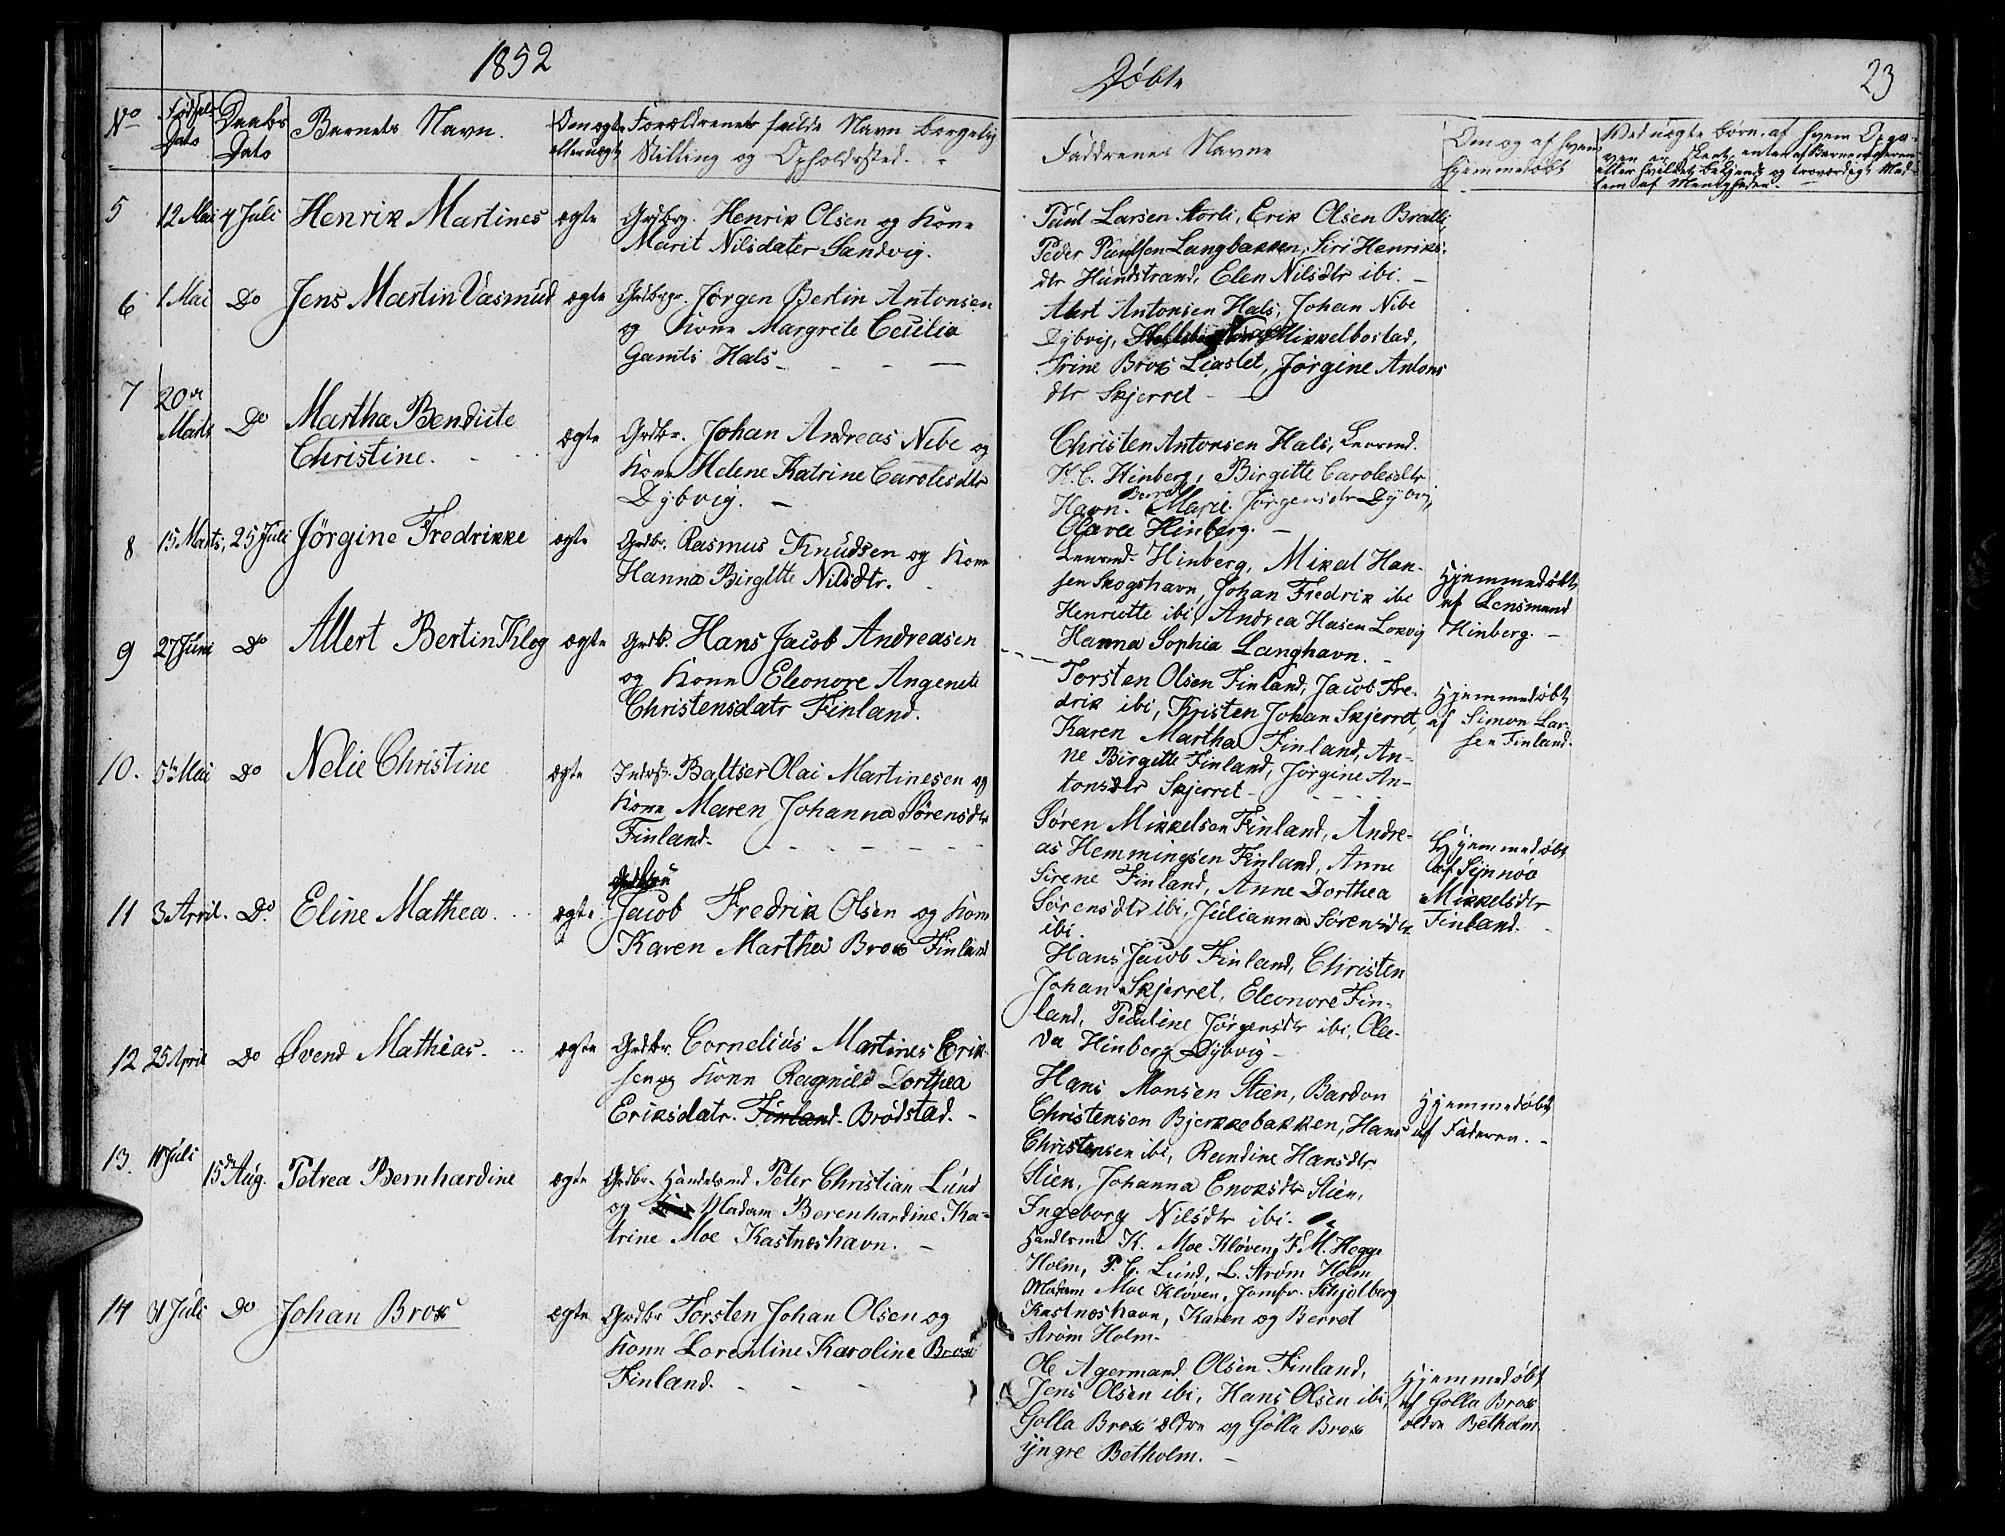 1852
Døbte
23
No
Fødsels
Dato
Daabs
Dato
Barnets Navn.
Om ægte
eller uægte
Forældrenes fulde Navn borgelig
Stilling og Opholdssted.
Faddrenes Navne
Om og af hvem
hjemmedøbt
Ved uægte børn, af hvem Opga-
ven er skeet, enten af Barnemoderen
eller hvilket bekjendt og troværdigt Med-
lem af Menigheden.
5 12 Mai 4 Juli Henrik Martines ægte Grdbrg. Henrik Olsen og Kone
Marit Nilsdater Sandvig.
Paul Larsen Storli, Erik Olsen Bratli
Peder Paulsen Langbakken, Siri Henriks-
dtr Hundstrand, Elen Nilsdtr ibi.
6 1 Mai Do Jens Martin Vasmud ægte Grdbrgr. Jørgen Bertin Antonsen
og Kone Margrete Cecilia
Gamts Hals
Alert Antonsen Hals, Johan Nibe
Dybvig, Mikkelbostad,
Trine Brox Liaslet, Jørgine Antons
dtr Skjerret
7 20de
Marts Do Martha Bendicte
Christine. ægte Grdbr. Johan Andreas Nibe og
Kone Helene Katrine Carolisdtr
Dybvig.
Christen Antonsen Hals, Lensmd.
K. C. Hinberg, Birgitte Carolesdtr
Havn. Berret Marie Jørgensdtr Dybvig,
Olava Hinberg.
8 15 Marts, 25 Juli Jørgine Fredrikke ægte Grdbr. Rasmus Knudsen og Kone
Hanna Birgitte Nilsdtr.
Lensmd. Hinberg, Mikal Han-
sen Skogshavn, Johan Fredrik ibi
Henriette ibi, Andrea Hasen Lokvig
Hanna Sophia Langhavn.
Hjemmedøbt
af Lensmand
Hinberg.
9 27 Juni Do Allert Bertin Klog ægte Grdb. Hans Jacob Andreasen
og Kone Eleonore Angenete
Christensdatr Finland.
Torsten Olsen Finland, Jacob Fre-
drik ibi, Kristen Johan Skjerret,
Karen Martha Finland, An-
ne Birgitte Finland, Jørgine An-
tonsdtr Skjerret
Hjemmedøbt
af Simon Lar-
sen Finland.
10. 5te Mai Do Nelie Christine ægte Indrs. Baltser Olai Martinesen og
Kone Maren Johanna Sørensdtr
Finland.
Søren Mikkelsen Finland, Andre-
as Hemmingsen Finland, Anne
Sirene Finland, Anne Dorthea
Sørensdtr ibi, Julianna Sørensdtr
ibi.
Hjemmedøbt
af Synnøo
Mikkelsdtr
Finland.
11 3 April. Do Eline Mathea. ægte Jacob Fredrik Olsen og Kone
Karen Martha Brox Finland
Hans Jacob Finland, Christen
Johan Skjerret, Eleonore Fin-
land, Pauline Jørgensdtr ibi, Ole-
va Hinberg Dybvig
12 25 April Do Svend Mathias. ægte Grdbr. Cornelius Martines Erik-
sen og Kone Ragnild Dorthea
Eriksdatr. Finland. Brødstad.
Hans Monsen Stien, Bardon
Christensen Bjerkkebakken, Hans
Christensen ibi, Randine Hansdtr
Stien, Johanna Enoksdtr Stien,
Ingeborg Nilsdtr ibi.
Hjemmedøbt
af Faderen.
13. Juli 15de Aug. Petrea Bernhardine ægte Grdbr. Handelsmd Peter Christian Lund
og Madam Berenhardine Ka-
trine Moe Kastneshavn.
Handlsmd K. Moe Kløven, F. M. Hegge
Holm, P. C. Lund, L. Strøm Holm
Madam Moe Kløven, Jomfr. Schjølberg
Kastneshavn, Karen og Berret
Strøm Holm.
14 Juli Do Johan Brox ægte Grdbr Torsten Johan Olsen og
Kone Lorentine Karoline Brox
Finland.
Ole Agermand Olsen Finland,
Jens Olsen ibi, Hans Olsen ibi,
Golla Brox ældre og Golla Brox
yngre Betholm.
Hjemmedøbt
af Golla Brox
ældre Betholm